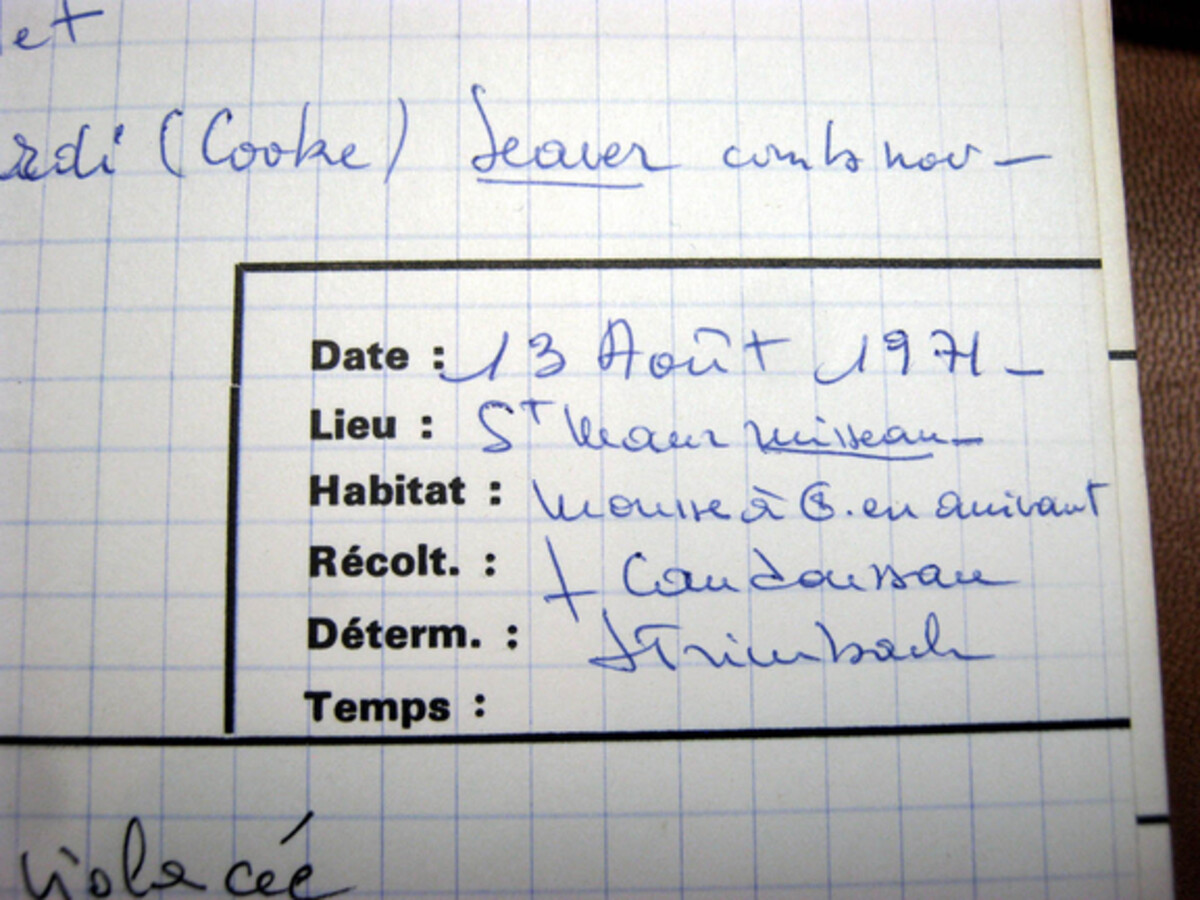 et
rdi (Cooke) Seaver comb nov —
Date : 13 Août 1971 —
Lieu : S^T Maur ruisseau —
Habitat : Mousse à G. en arrivant
Récolt. : Candoussau
Déterm. : Trimbach
Temps :
violacée